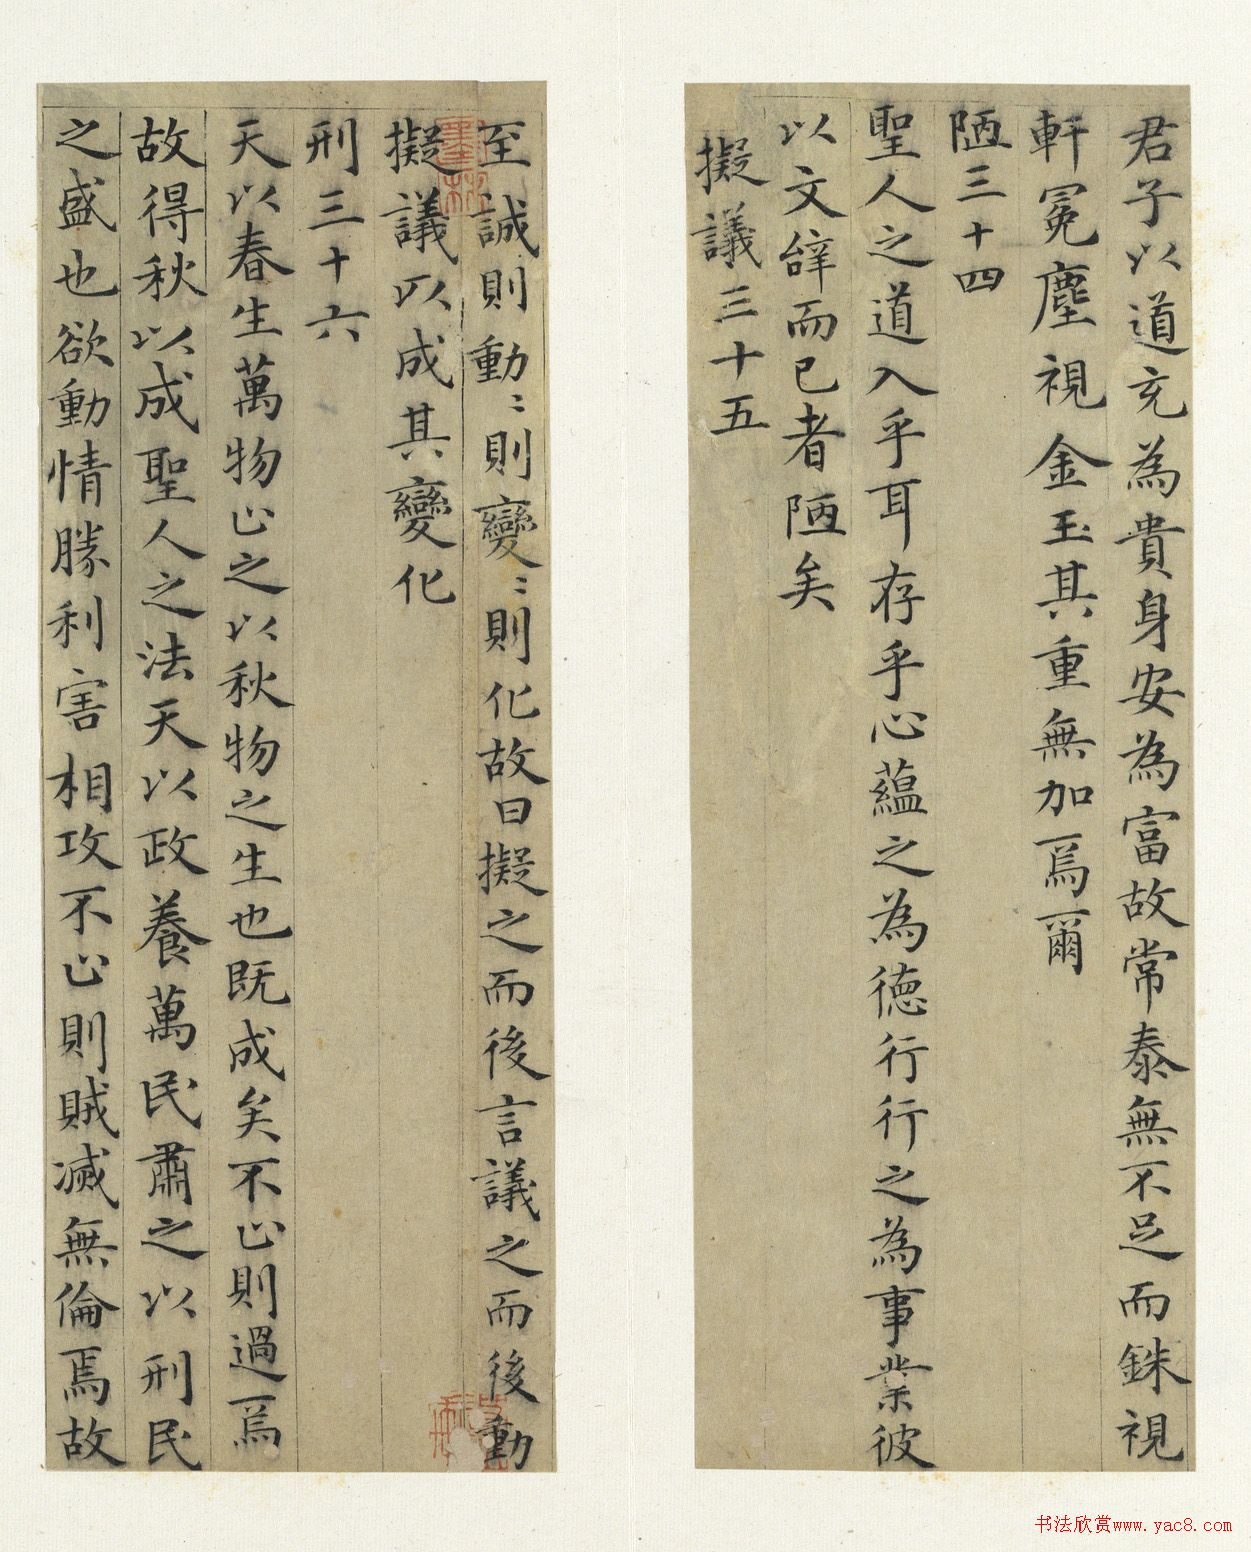 君子以道充為貴身安為富故常泰無不足而銖視
軒冕塵視金玉其重無加焉爾
陋三十四
聖人之道入乎耳存乎心蘊之為德行行之為事業彼
以文辭而已者陋矣
擬議三十五
至誠則動〻則變〻則化故曰擬之而後言議之而後動
擬議以成其變化
刑三十六
天以春生萬物止之以秋物之生也既成矣不止則過焉
故得秋以成聖人之法天以政養萬民肅之以刑民
之盛也欲動情勝利害相攻不止則賊滅無倫焉故
书法欣赏www.yac8.com